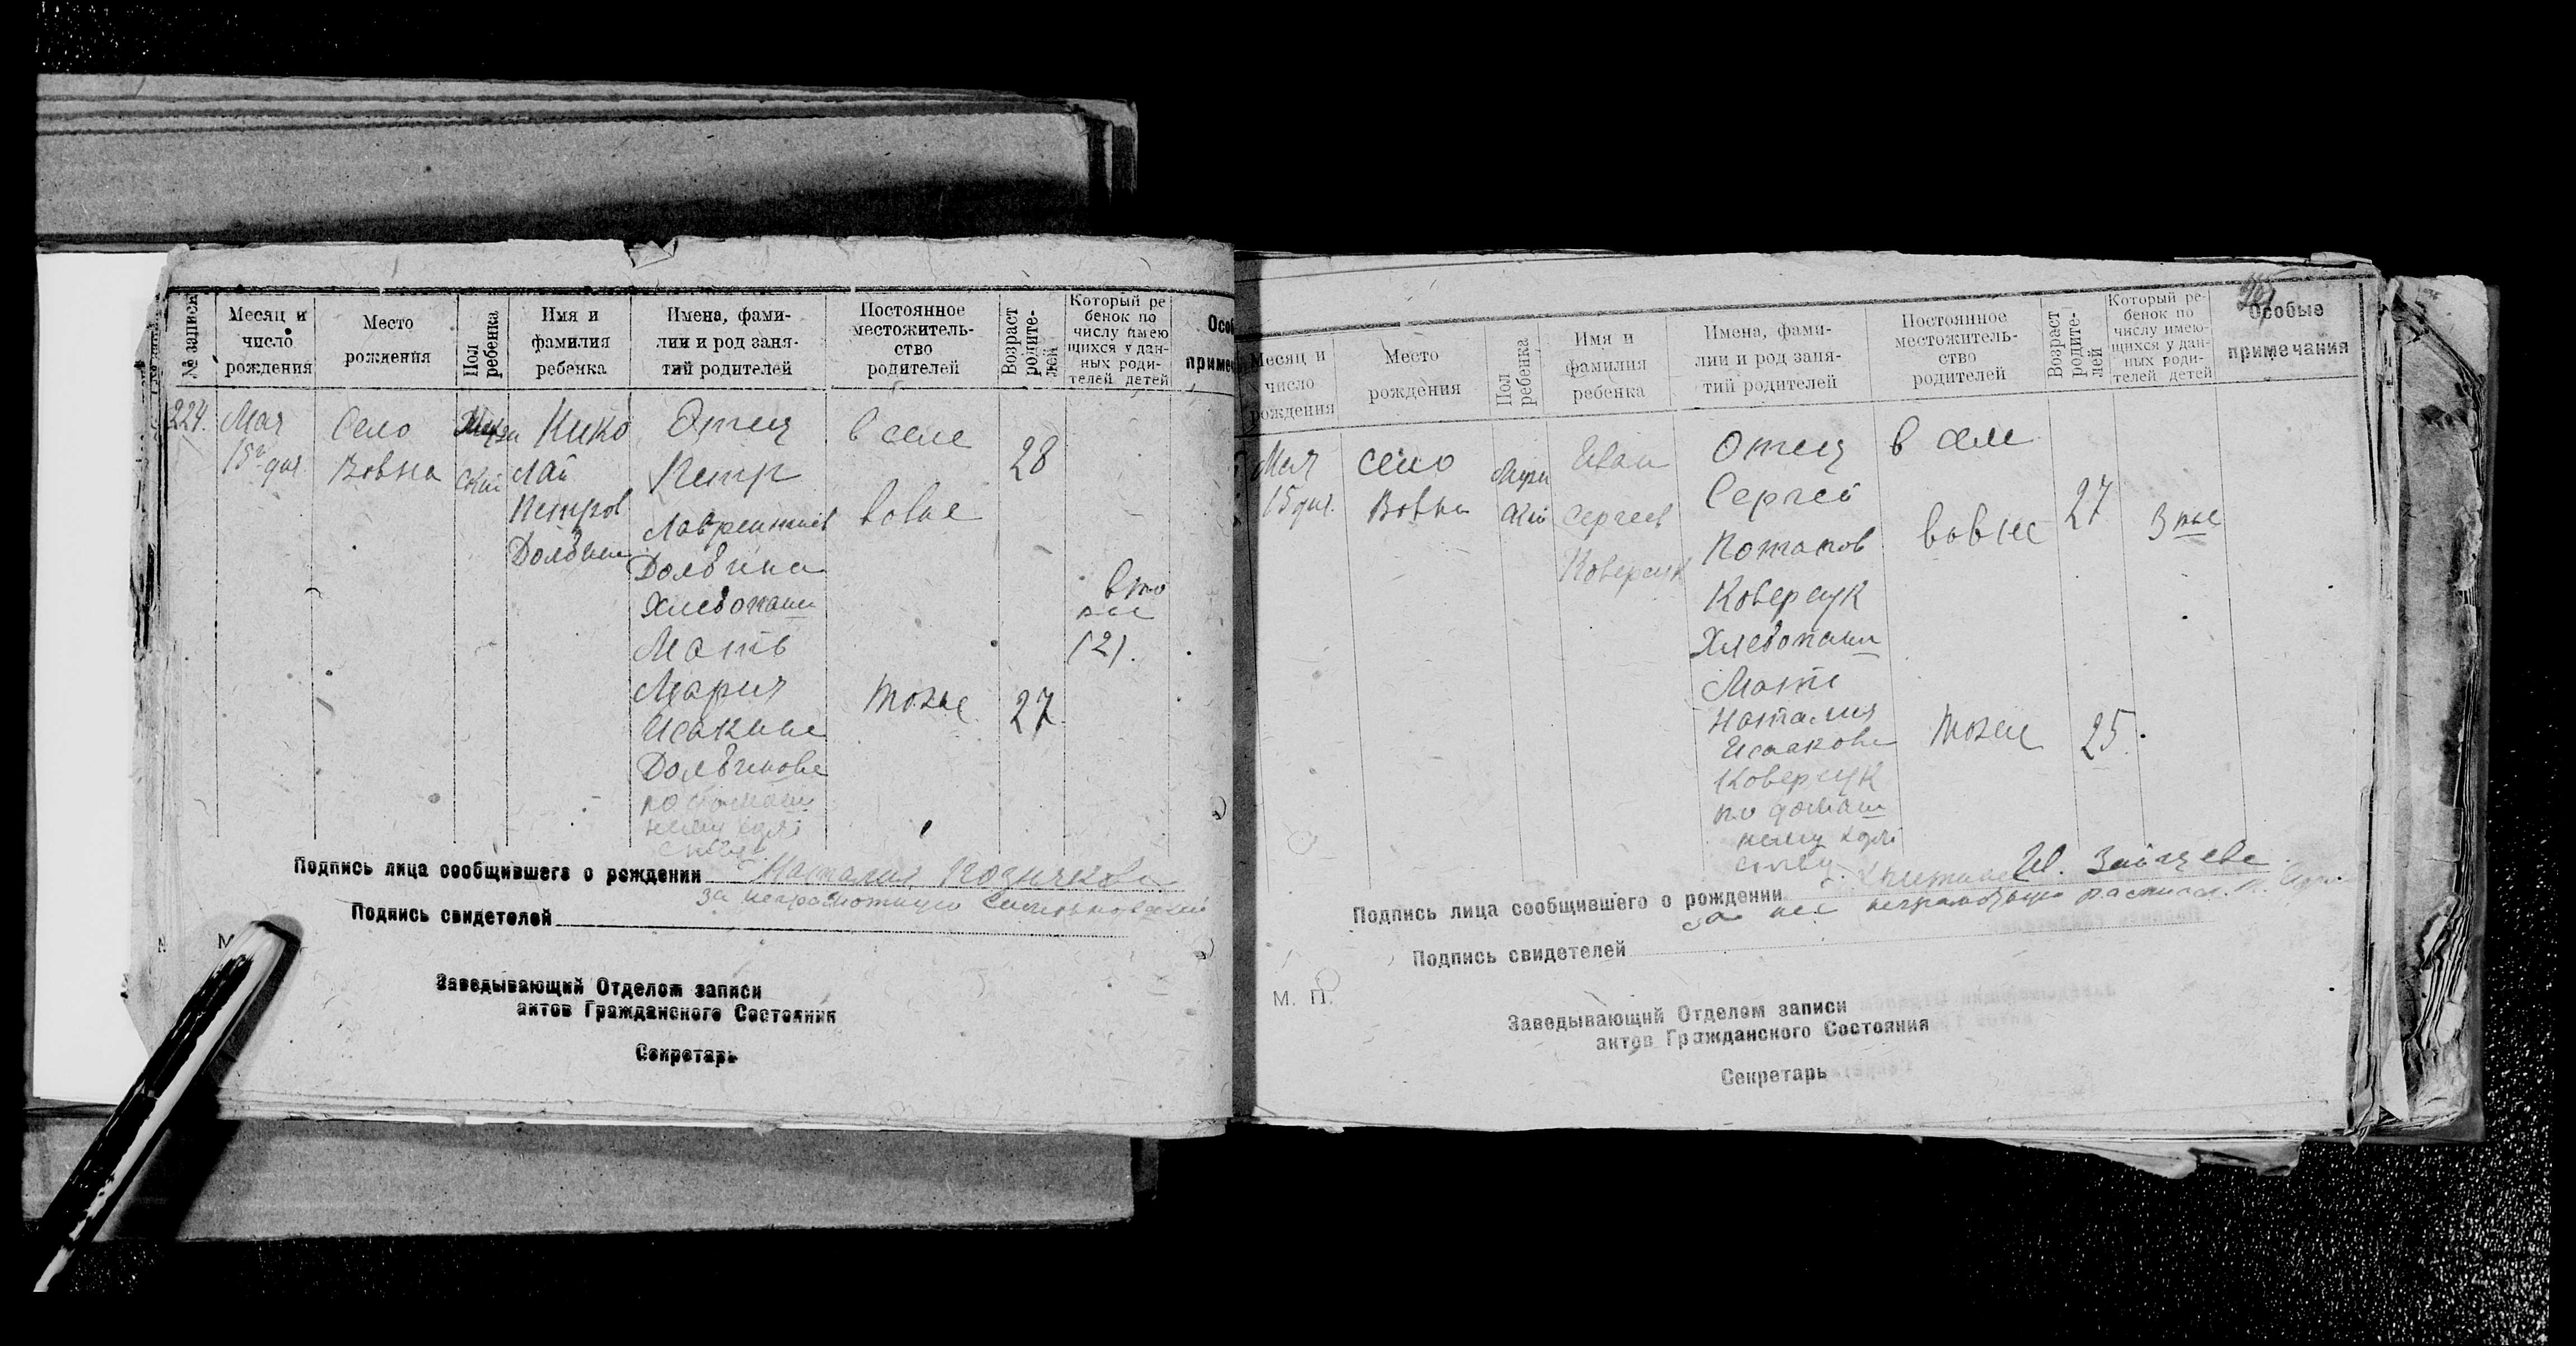 № записи
Месяц и
число
рождения
Место
рождения
Пол
ребенка
Имя и
фамилия
ребенка
Имена, фами-
лии и род заня-
тий родителей
Постоянное
местожитель-
ство
родителей
Возраст
родите-
лей
Который ре
бенок по
числу имею
щихся у дан-
ных роди-
телей детей
Особ
примеч
224.
Мая
15го дня
Село
Вовна
Мужс
ский
Нико
лай
Петров
Долбин
Отец
Петр
Лаврентиев
Долбина
Хлебопаш
Мать
Мария
Исакина
Долбинова
по домаш
нему
в селе
Вовне
тоже
28
27
вто
рое
(2).
Подпись лица сообщившего о рождении Наталия Познякова
за неграмотную
Подпись свидетелей
М
Заведывающий Отделом записи
актов Гражданского Состояния
Секретарь
Месяц и
число
рождения
Место
рождения
Пол
ребенка
Имя и
фамилия
ребенка
Имена, фами-
лии и род заня-
тий родителей
Постоянное
местожитель-
ство
родителей
Возраст
родите-
лей
Который ре-
бенок по
числу имею-
щихся у дан-
ных роди-
телей детей
Особые
примечания
Мая
15 дня.
село
Вовна
Мужс
кий
Иван
Сергеев
Коверсук
Отец
Сергей
Потапов
Коверсук
Хлебопаш
Мать
Наталия
Исаакова
Коверсук
по домаш
нему
в селе
вовне
тоже
27
25.
3 тье
Подпись лица сообщившего о рождении И. Зайцева
за нее неграмотную расписал.
Подпись свидетелей
М. П.
Заведывающий Отделом записи
актов Гражданского Состояния
Секретарь